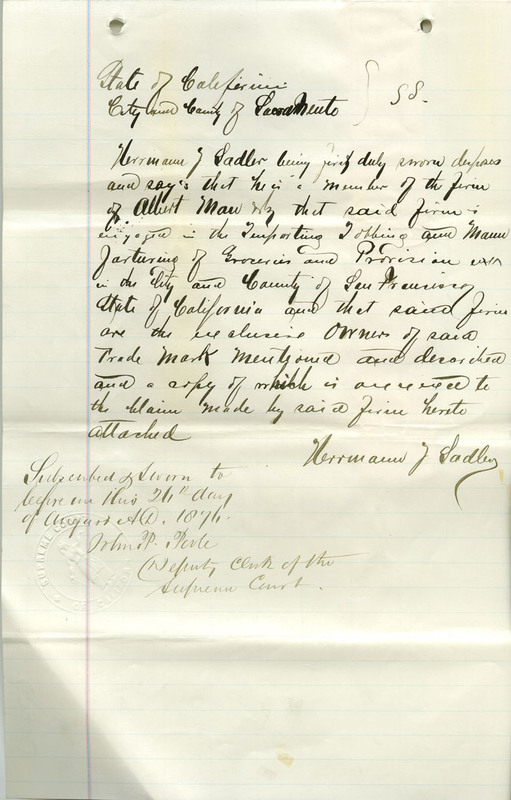 State of California
City and County of Sacramento } SS.
Herrmann J Sadler being first duly sworn deposes
and says that he is a member of the firm
of Albert Mau & Co that said firm is
engaged in the Importing Jobbing and Manu
facturing of Groceries and Provision
in the City and County of San Francisco
State of California and that said firm
are the exclusive owners of said
Trade Mark mentioned and described
and a copy of which is annexed to
the Claim made by said firm hereto
attached
Herrmann J Sadler
Subscribed & Sworn to
before me this 26th day
of August A.D. 1876.
John W.
Deputy Clerk of the
Supreme Court.
SUPREME